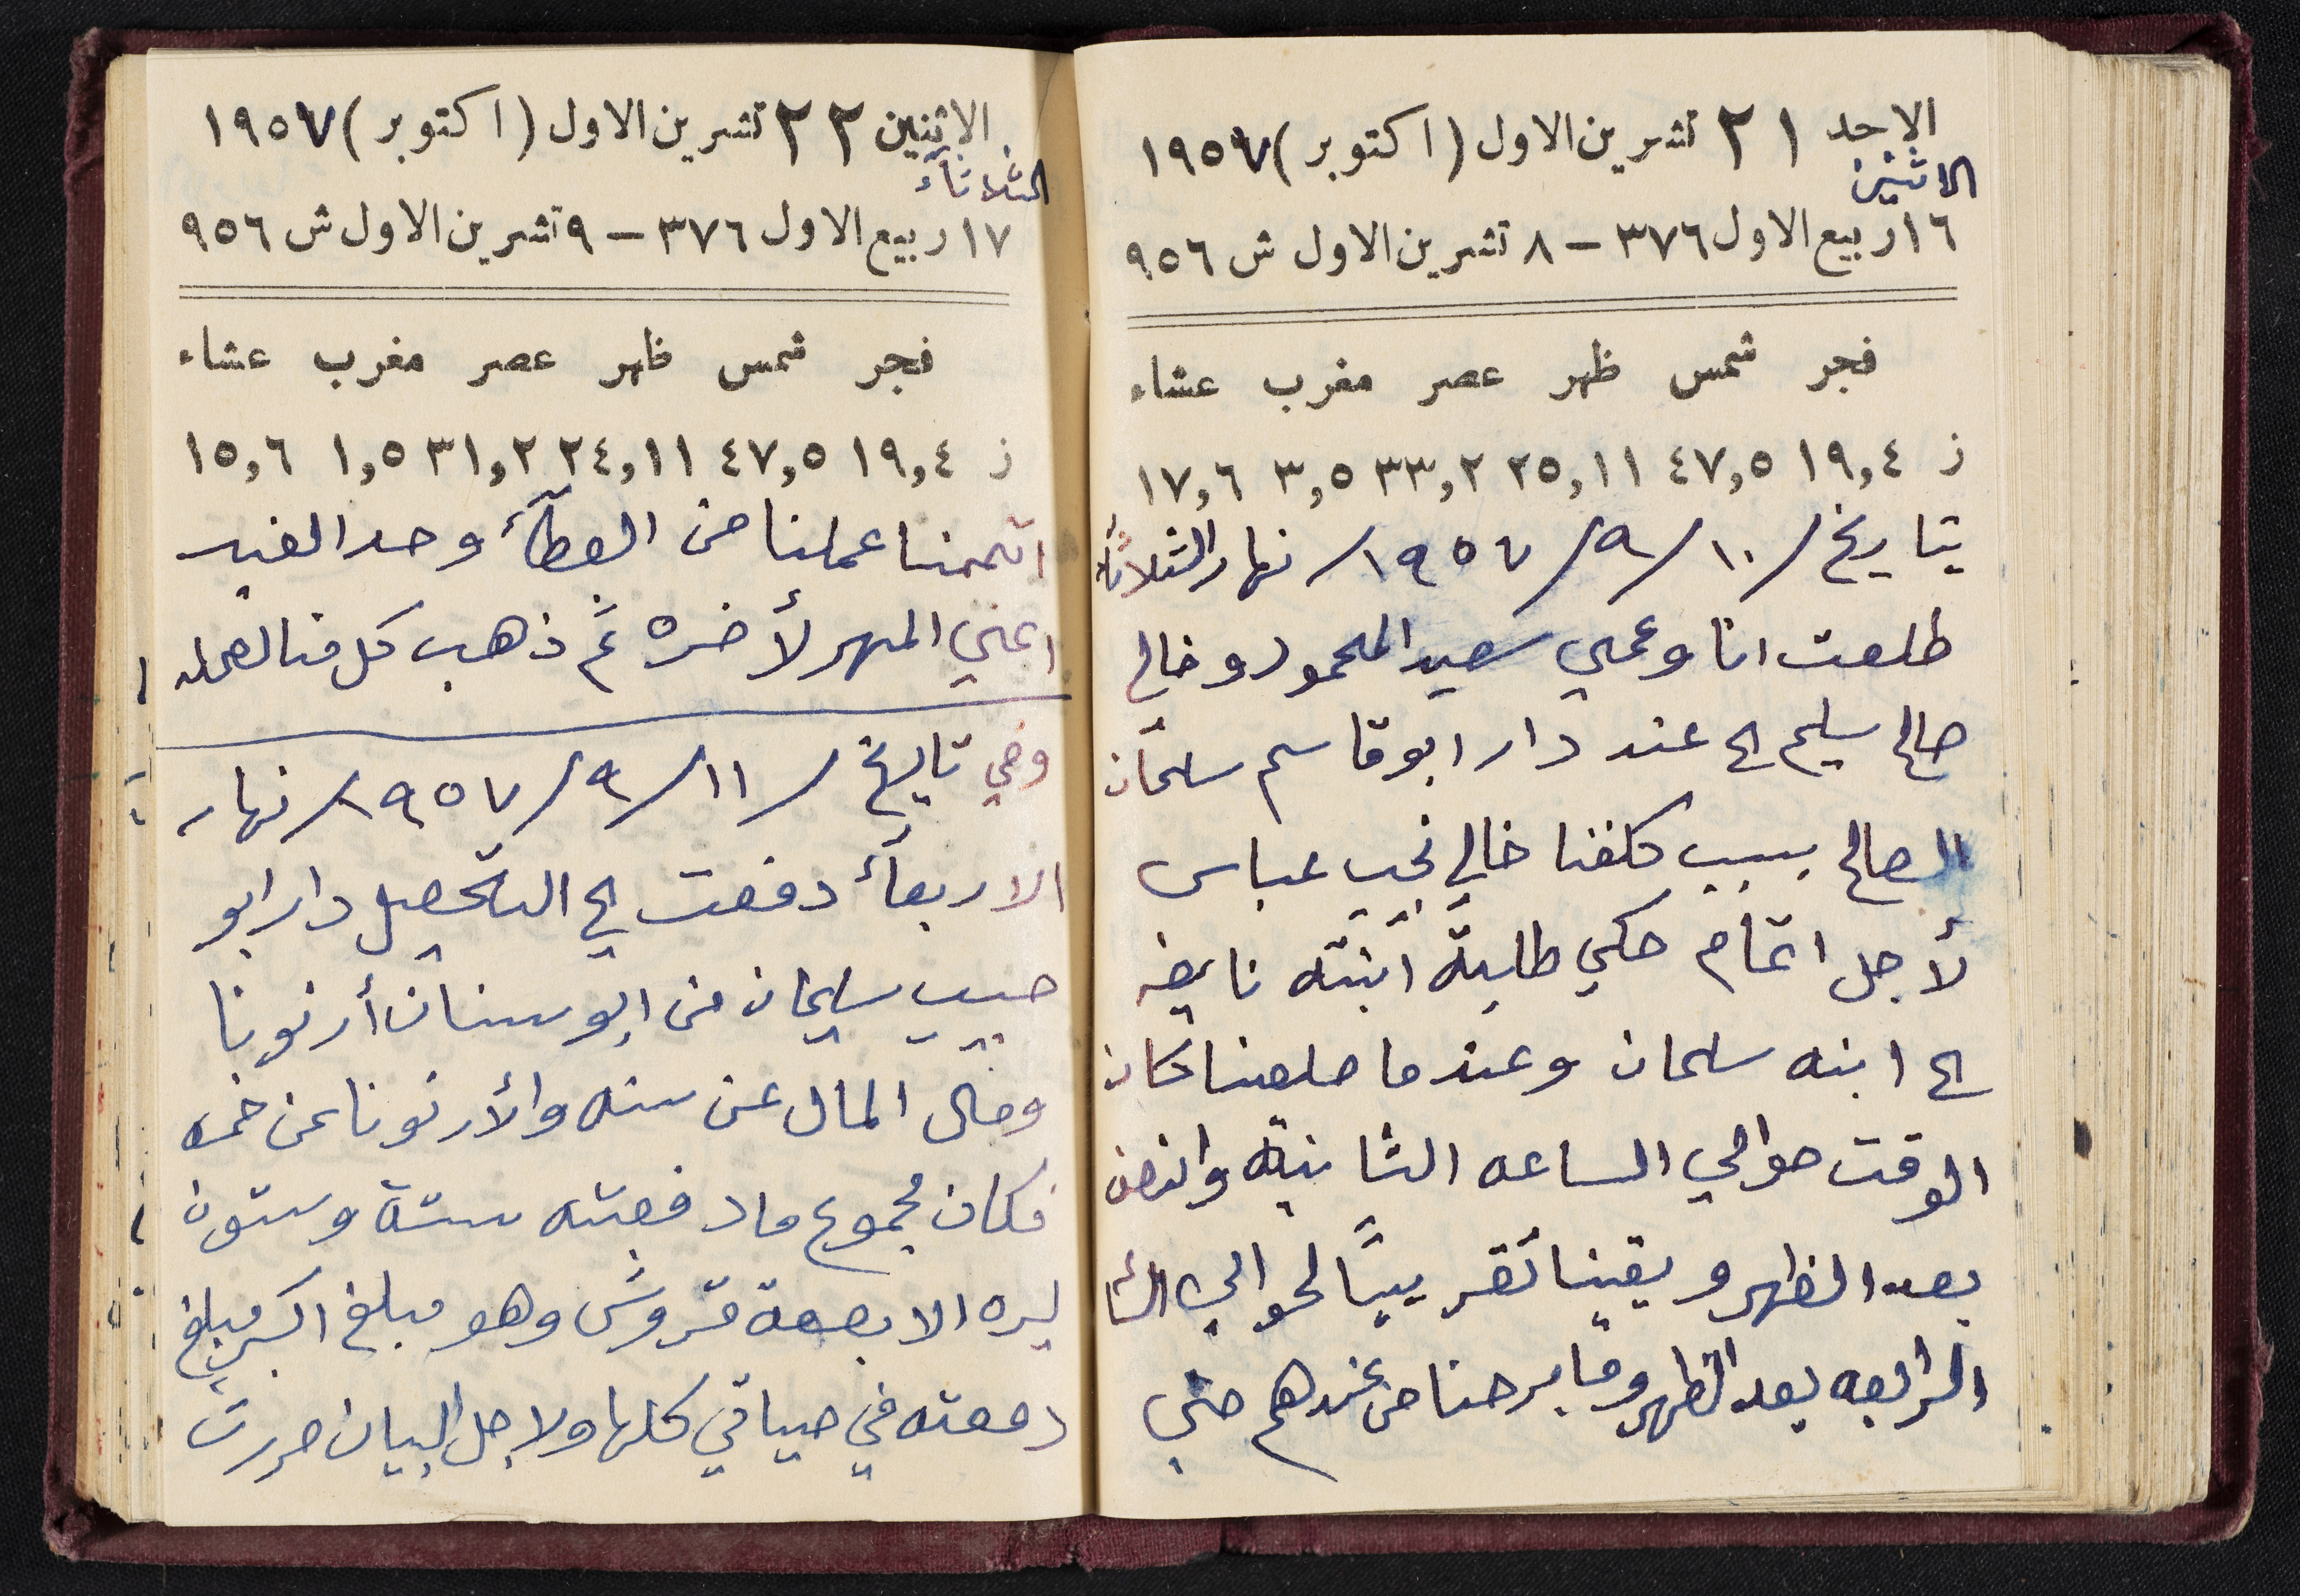 الاحد ٢١ تشرين الاول (اكتوبر) ١٩٥٧
الاثنين
١٦ ربيع الاول ٣٧٦ – ٨ تشرين الاول ش ٩٥٦
فجر شمس ظهر عصر مغرب عشاء
ز ١٩,٤ ٤٧,٥ ٢٥,١١ ٣٣,٢ ٣,٥ ١٧,٦
بتاريخ /١٠/٩/١٩٥٧/ نهار الثلاثاء
طلعت انا وعمي سعيد المحمود وخالي
صالح سليم الى عند دار ابو قاسم سلمان
الصالح بسبب كلفنا خالي نجيب عباس
لأجل اتمام حكي طلبة ابنته نايفه
الى ابنه سلمان وعندما طلعنا كان
الوقت حوالي الساعه الثانية والنصف
بعد الظهر وبقينا تقريبًا لحوالي السا
الرابعه بعد الظهر وما برحنا من عندهم حتى
الاثنين ٢٢ تشرين الاول (اكتوبر) ١٩٥٧
الثلاثآء
١٧ ربيع الاول ٣٧٦ – ٩ تشرين الاول ش ٩٥٦
فجر شمس ظهر عصر مغرب عشاء
ز ١٩,٤ ٤٧,٥ ٢٤,١١ ٣١,٢ ١,٥ ١٥,٦
اتممنا عملنا من العطآء وحد الفيد
اعني المهر لأخره ثم ذهب كل منا لعمله
وفي تاريخ /١١/٩/١٩٥٧/ نهار
الاربعآء دفعت الى التحصيل دار ابو
حبيب سليمان من ابو سنان أرنونا
ومال المال عن سنه والأرنونا عن خمسه
فكان مجموع ما دفعته ستة وستون
ليره الا بضعة قروش وهو مبلغ اكبر مبلغ
دفعته في حياتي كلها ولاجل البيان حررت